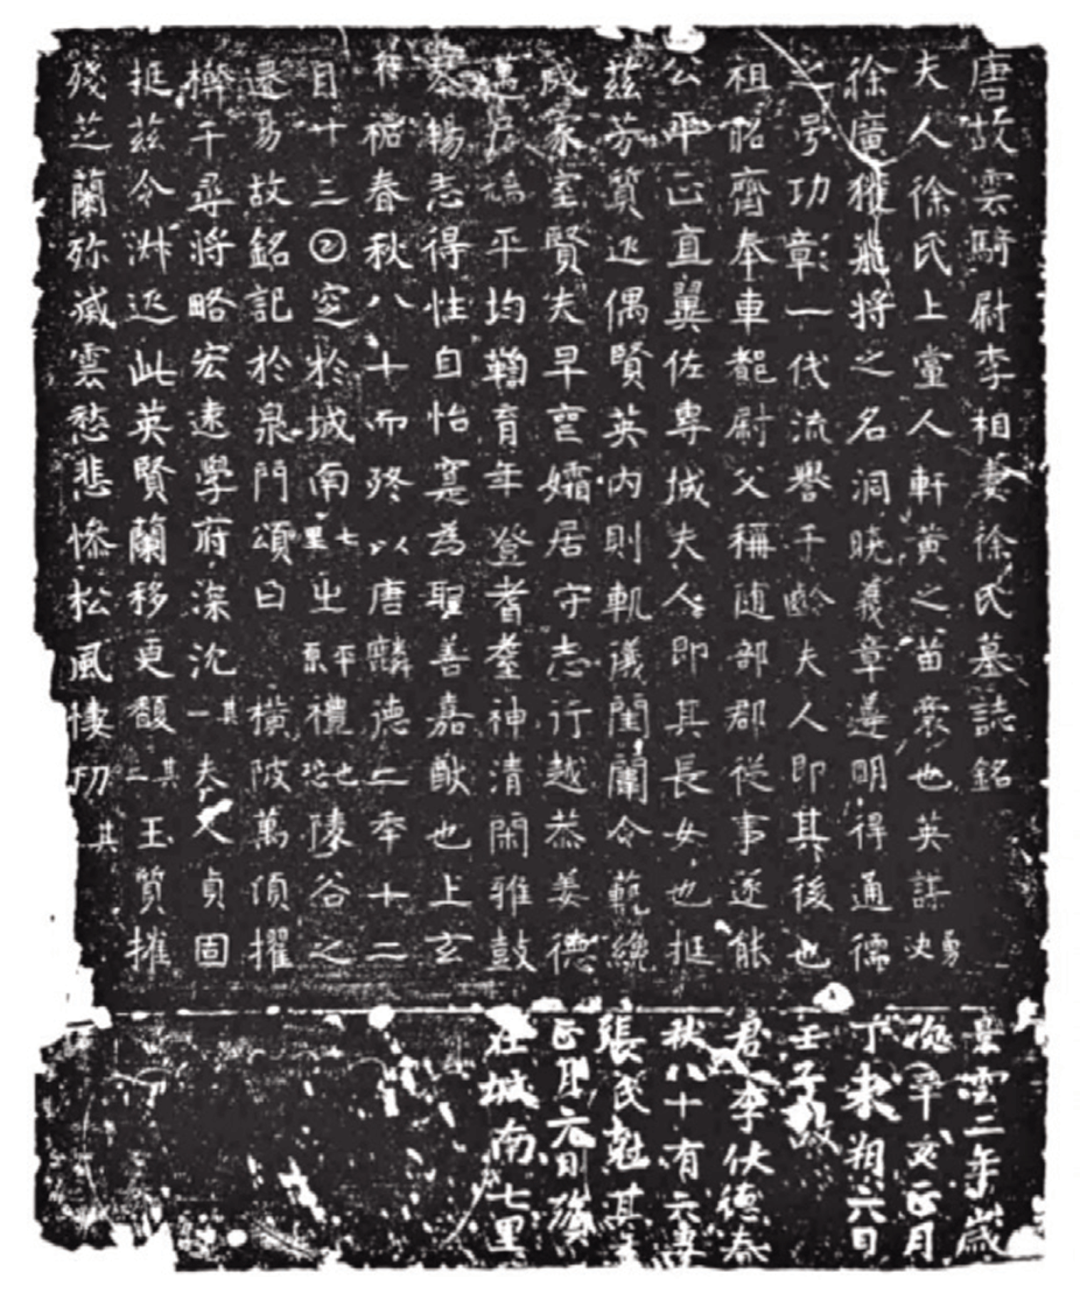 唐故雲騎尉李相妻徐氏墓誌銘
夫人徐氏上黨人軒黃之苗裔也英謀勇决
徐廣獲飛將之名洞曉義章遵明得通儒
之号功章一代流譽千齡夫人即其後也
祖昭齊奉車都尉父稱随部郡從事逐能
公平正直翼佐專城夫人即其長女也挺
茲芬質迊偶賢英内則軌儀閨闈令範纔
成家室賢夫早喪孀居守志行越恭姜德
邁居鳩平均鞠育年登耆耋神清閑雅鼓
琴揚志得性自怡寔為聖善嘉猷也上玄
祐春秋八十而終以唐麟德二年十二
月十三②窆於城南七里之平原禮也恐陵谷之
遷易故銘記於泉門頌曰橫陂萬頃擢
榦千尋將略宏遠學府深沈其一夫人貞固
挺茲令淋迊此英賢蘭移更馥其二玉質摧
殘芝蘭殄滅雲愁悲慘松風悽切其
景雲二年歲
次辛亥正月
丁未朔六日
壬子故
君李伏德春
秋八十有六妻
張氏尅其年
正月六日殯
在城南七里